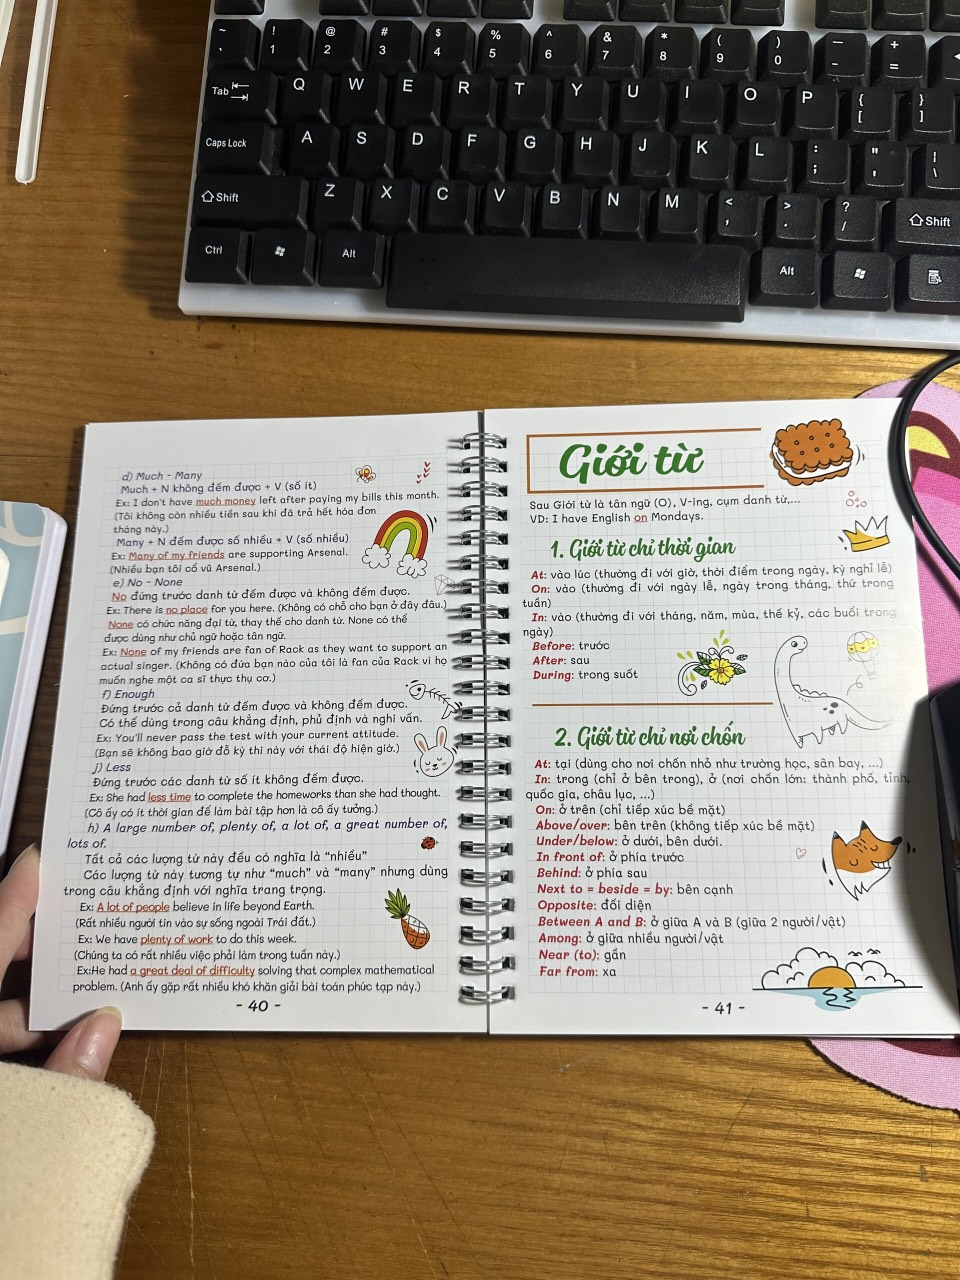 ~ `
! 1
@ 2
# 3
$ 4
% 5
^ 6
& 7
* 8
( 9
) 0
— -
+ =
Tab Q W E R T Y U I O P { [ } ]
Caps Lock A S D F G H J K L : ; " ' | \
Shift Z X C V B N M < , > . ? / Shift
Ctrl Alt Alt
d) Much - Many
Much + N không đếm được + V (số ít)
Ex: I don't have much money left after paying my bills this month.
(Tôi không còn nhiều tiền sau khi đã trả hết hóa đơn
tháng này.)
Many + N đếm được số nhiều + V (số nhiều)
Ex: Many of my friends are supporting Arsenal.
(Nhiều bạn tôi cổ vũ Arsenal.)
e) No - None
No đứng trước danh từ đếm được và không đếm được.
Ex: There is no place for you here. (Không có chỗ cho bạn ở đây đâu.)
None có chức năng đại từ, thay thế cho danh từ. None có thể
được dùng như chủ ngữ hoặc tân ngữ.
Ex: None of my friends are fan of Rack as they want to support an
actual singer. (Không có đứa bạn nào của tôi là fan của Rack vì họ
muốn nghe một ca sĩ thực thụ cơ.)
f) Enough
Đứng trước cả danh từ đếm được và không đếm được.
Có thể dùng trong câu khẳng định, phủ định và nghi vấn.
Ex: You'll never pass the test with your current attitude.
(Bạn sẽ không bao giờ đỗ kỳ thi này với thái độ hiện giờ.)
j) Less
Đứng trước các danh từ số ít không đếm được.
Ex: She had less time to complete the homeworks than she had thought.
(Cô ấy có ít thời gian để làm bài tập hơn là cô ấy tưởng.)
h) A large number of, plenty of, a lot of, a great number of,
lots of.
Tất cả các lượng từ này đều có nghĩa là “nhiều”
Các lượng từ này tương tự như “much” và “many” nhưng dùng
trong câu khẳng định với nghĩa trang trọng.
Ex: A lot of people believe in life beyond Earth.
(Rất nhiều người tin vào sự sống ngoài Trái đất.)
Ex: We have plenty of work to do this week.
(Chúng ta có rất nhiều việc phải làm trong tuần này.)
Ex:He had a great deal of difficulty solving that complex mathematical
problem. (Anh ấy gặp rất nhiều khó khăn giải bài toán phức tạp này.)
- 40 -
Giới từ
Sau Giới từ là tân ngữ (O), V-ing, cụm danh từ,...
VD: I have English on Mondays.
1. Giới từ chỉ thời gian
At: vào lúc (thường đi với giờ, thời điểm trong ngày, kỳ nghỉ lễ)
On: vào (thường đi với ngày lễ, ngày trong tháng, thứ trong
tuần)
In: vào (thường đi với tháng, năm, mùa, thế kỷ, các buổi trong
ngày)
Before: trước
After: sau
During: trong suốt
2. Giới từ chỉ nơi chốn
At: tại (dùng cho nơi chốn nhỏ như trường học, sân bay, ...)
In: trong (chỉ ở bên trong), ở (nơi chốn lớn: thành phố, tỉnh,
quốc gia, châu lục, ...)
On: ở trên (chỉ tiếp xúc bề mặt)
Above/over: bên trên (không tiếp xúc bề mặt)
Under/below: ở dưới, bên dưới.
In front of: ở phía trước
Behind: ở phía sau
Next to = beside = by: bên cạnh
Opposite: đối diện
Between A and B: ở giữa A và B (giữa 2 người/vật)
Among: ở giữa nhiều người/vật
Near (to): gần
Far from: xa
- 41 -